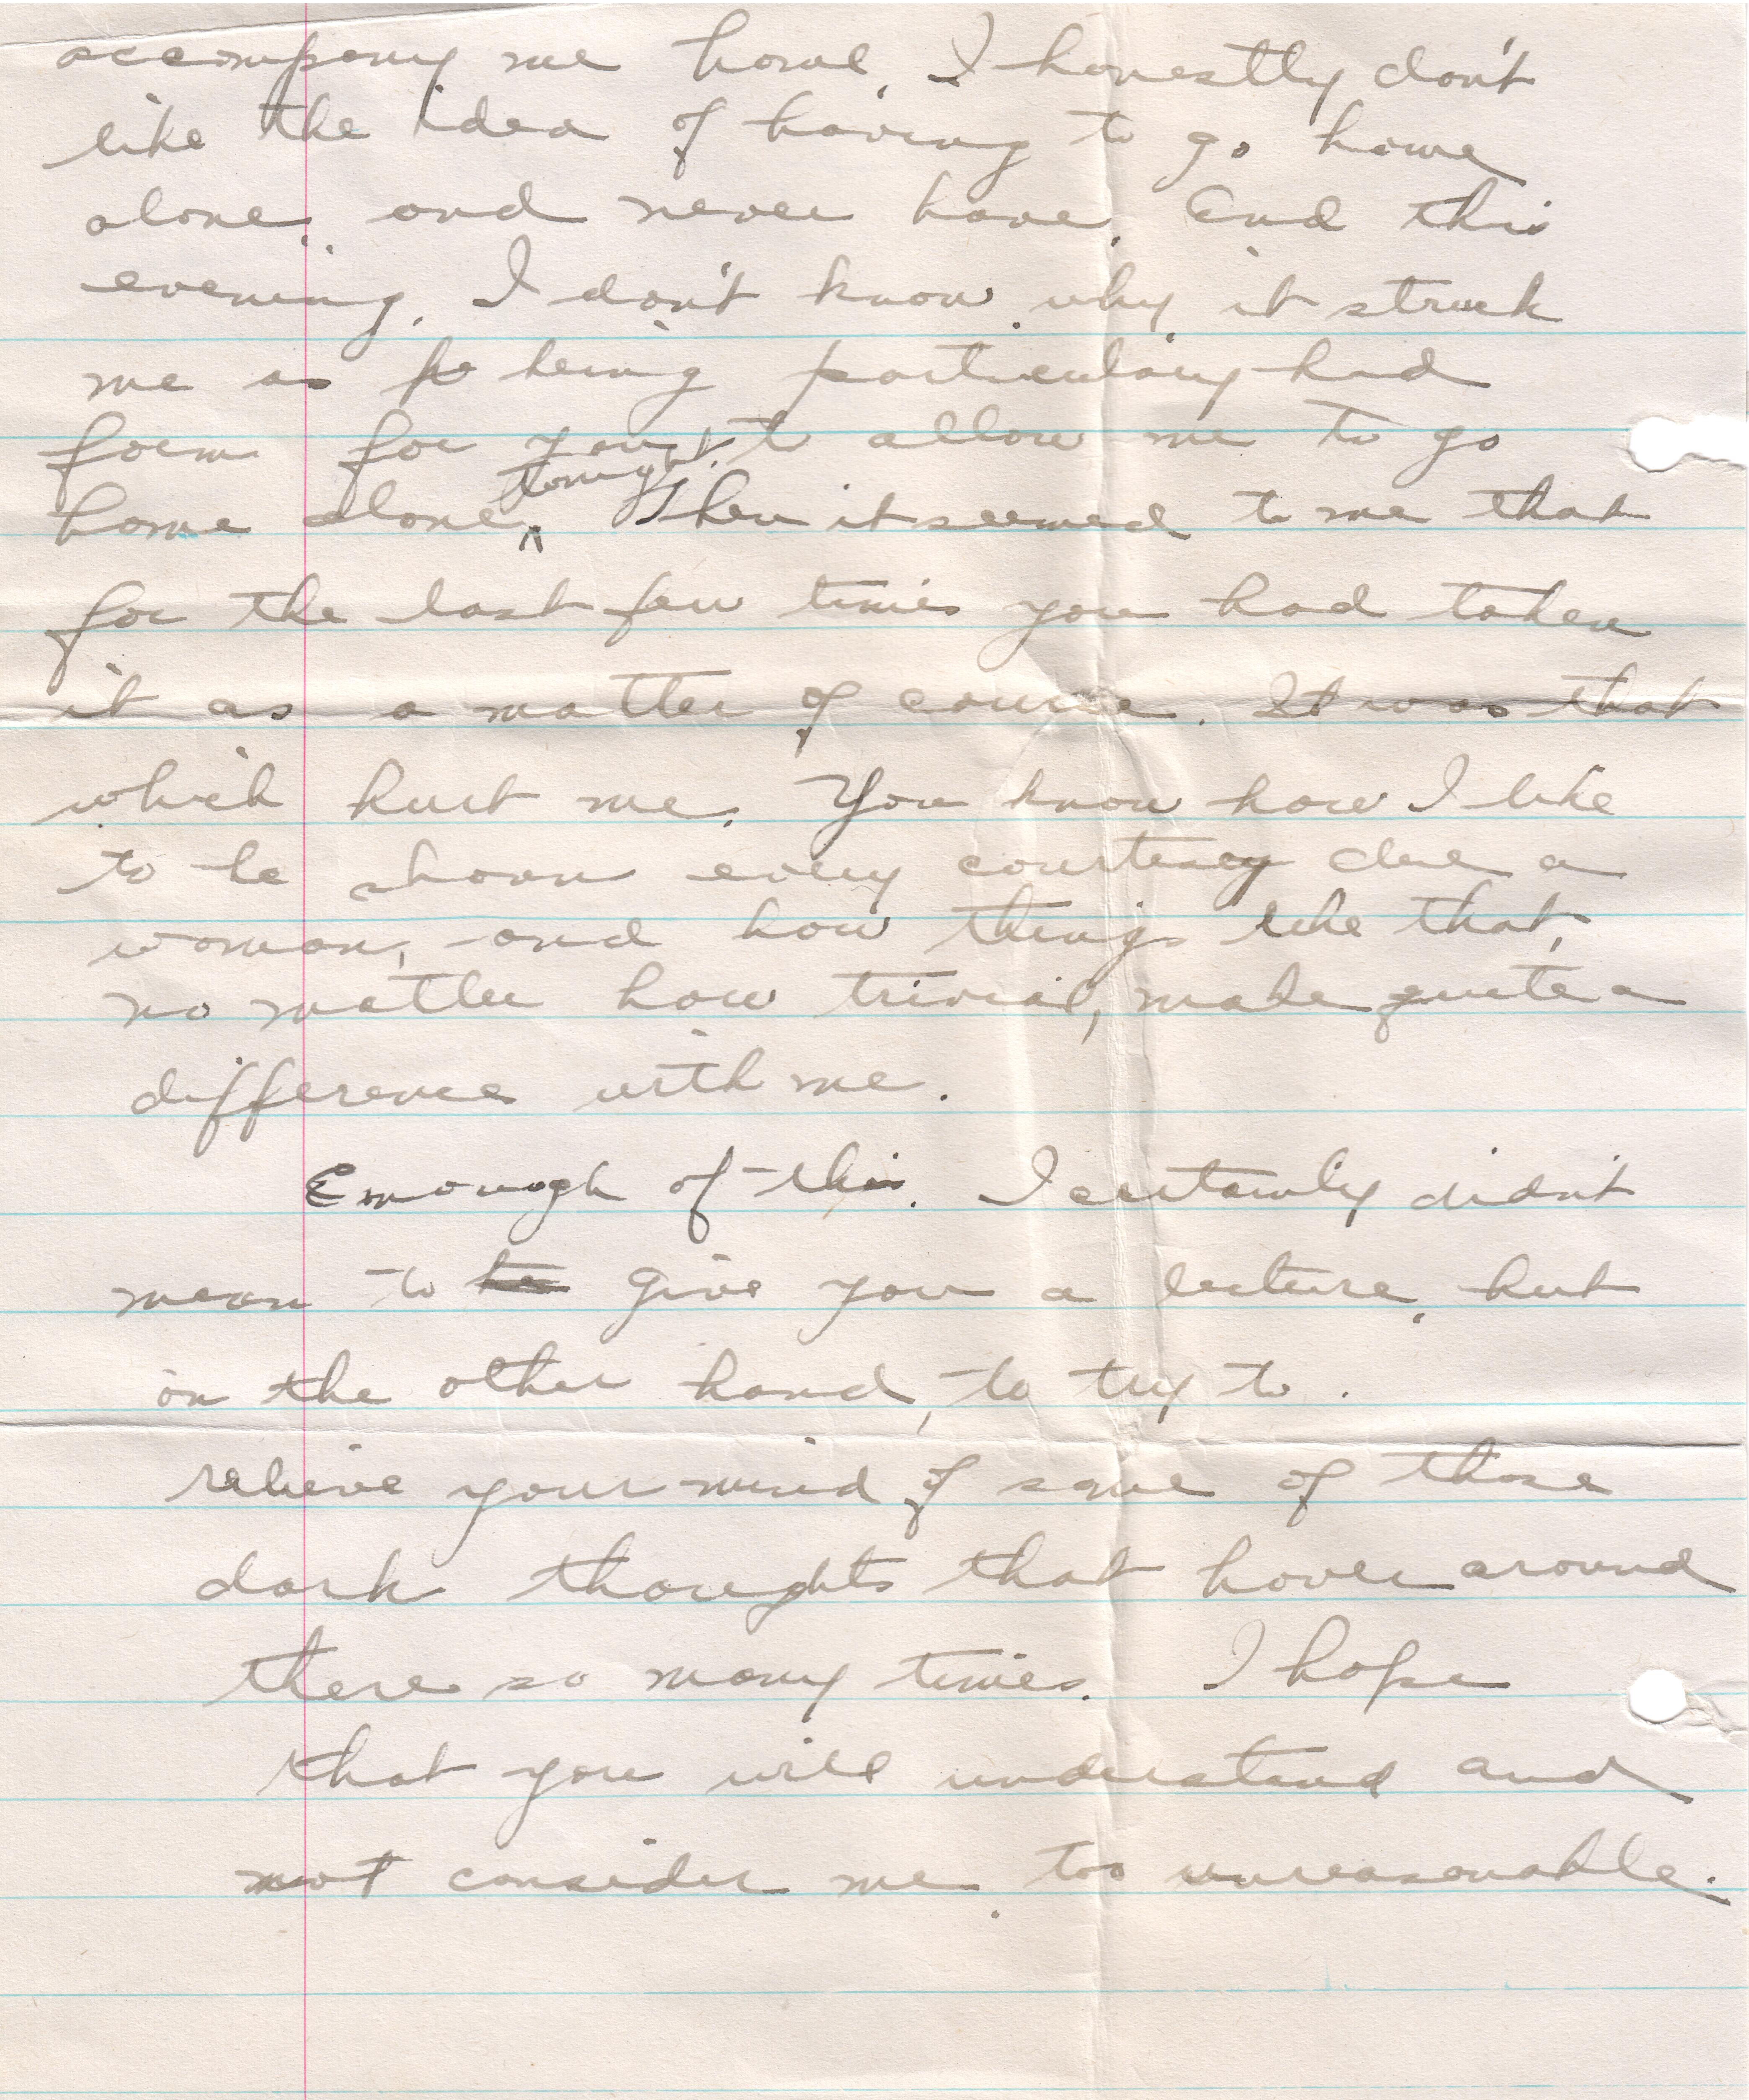 accompany me home. I honestly don't
like the idea of having to go home
alone, and never have. And this
evening, I don't know why, it struck
me as being particulary bad
form for you to allow me to go
home alone, tonight. Then it seemed to me that
for the last few times you had taken
it as a matter of course. It was that
which hurt me. You know how I like
to be shown every courtesy due a
woman, and how things like that,
no matter how trivial, make quite a
difference with me.
Enough of this. I certainly didn't
mean to give you a lecture, but
on the other hand, to try to
relieve your mind of some of those
dark thoughts that hover around
there so many times. I hope
that you will understand and
not consider me too unreasonable.